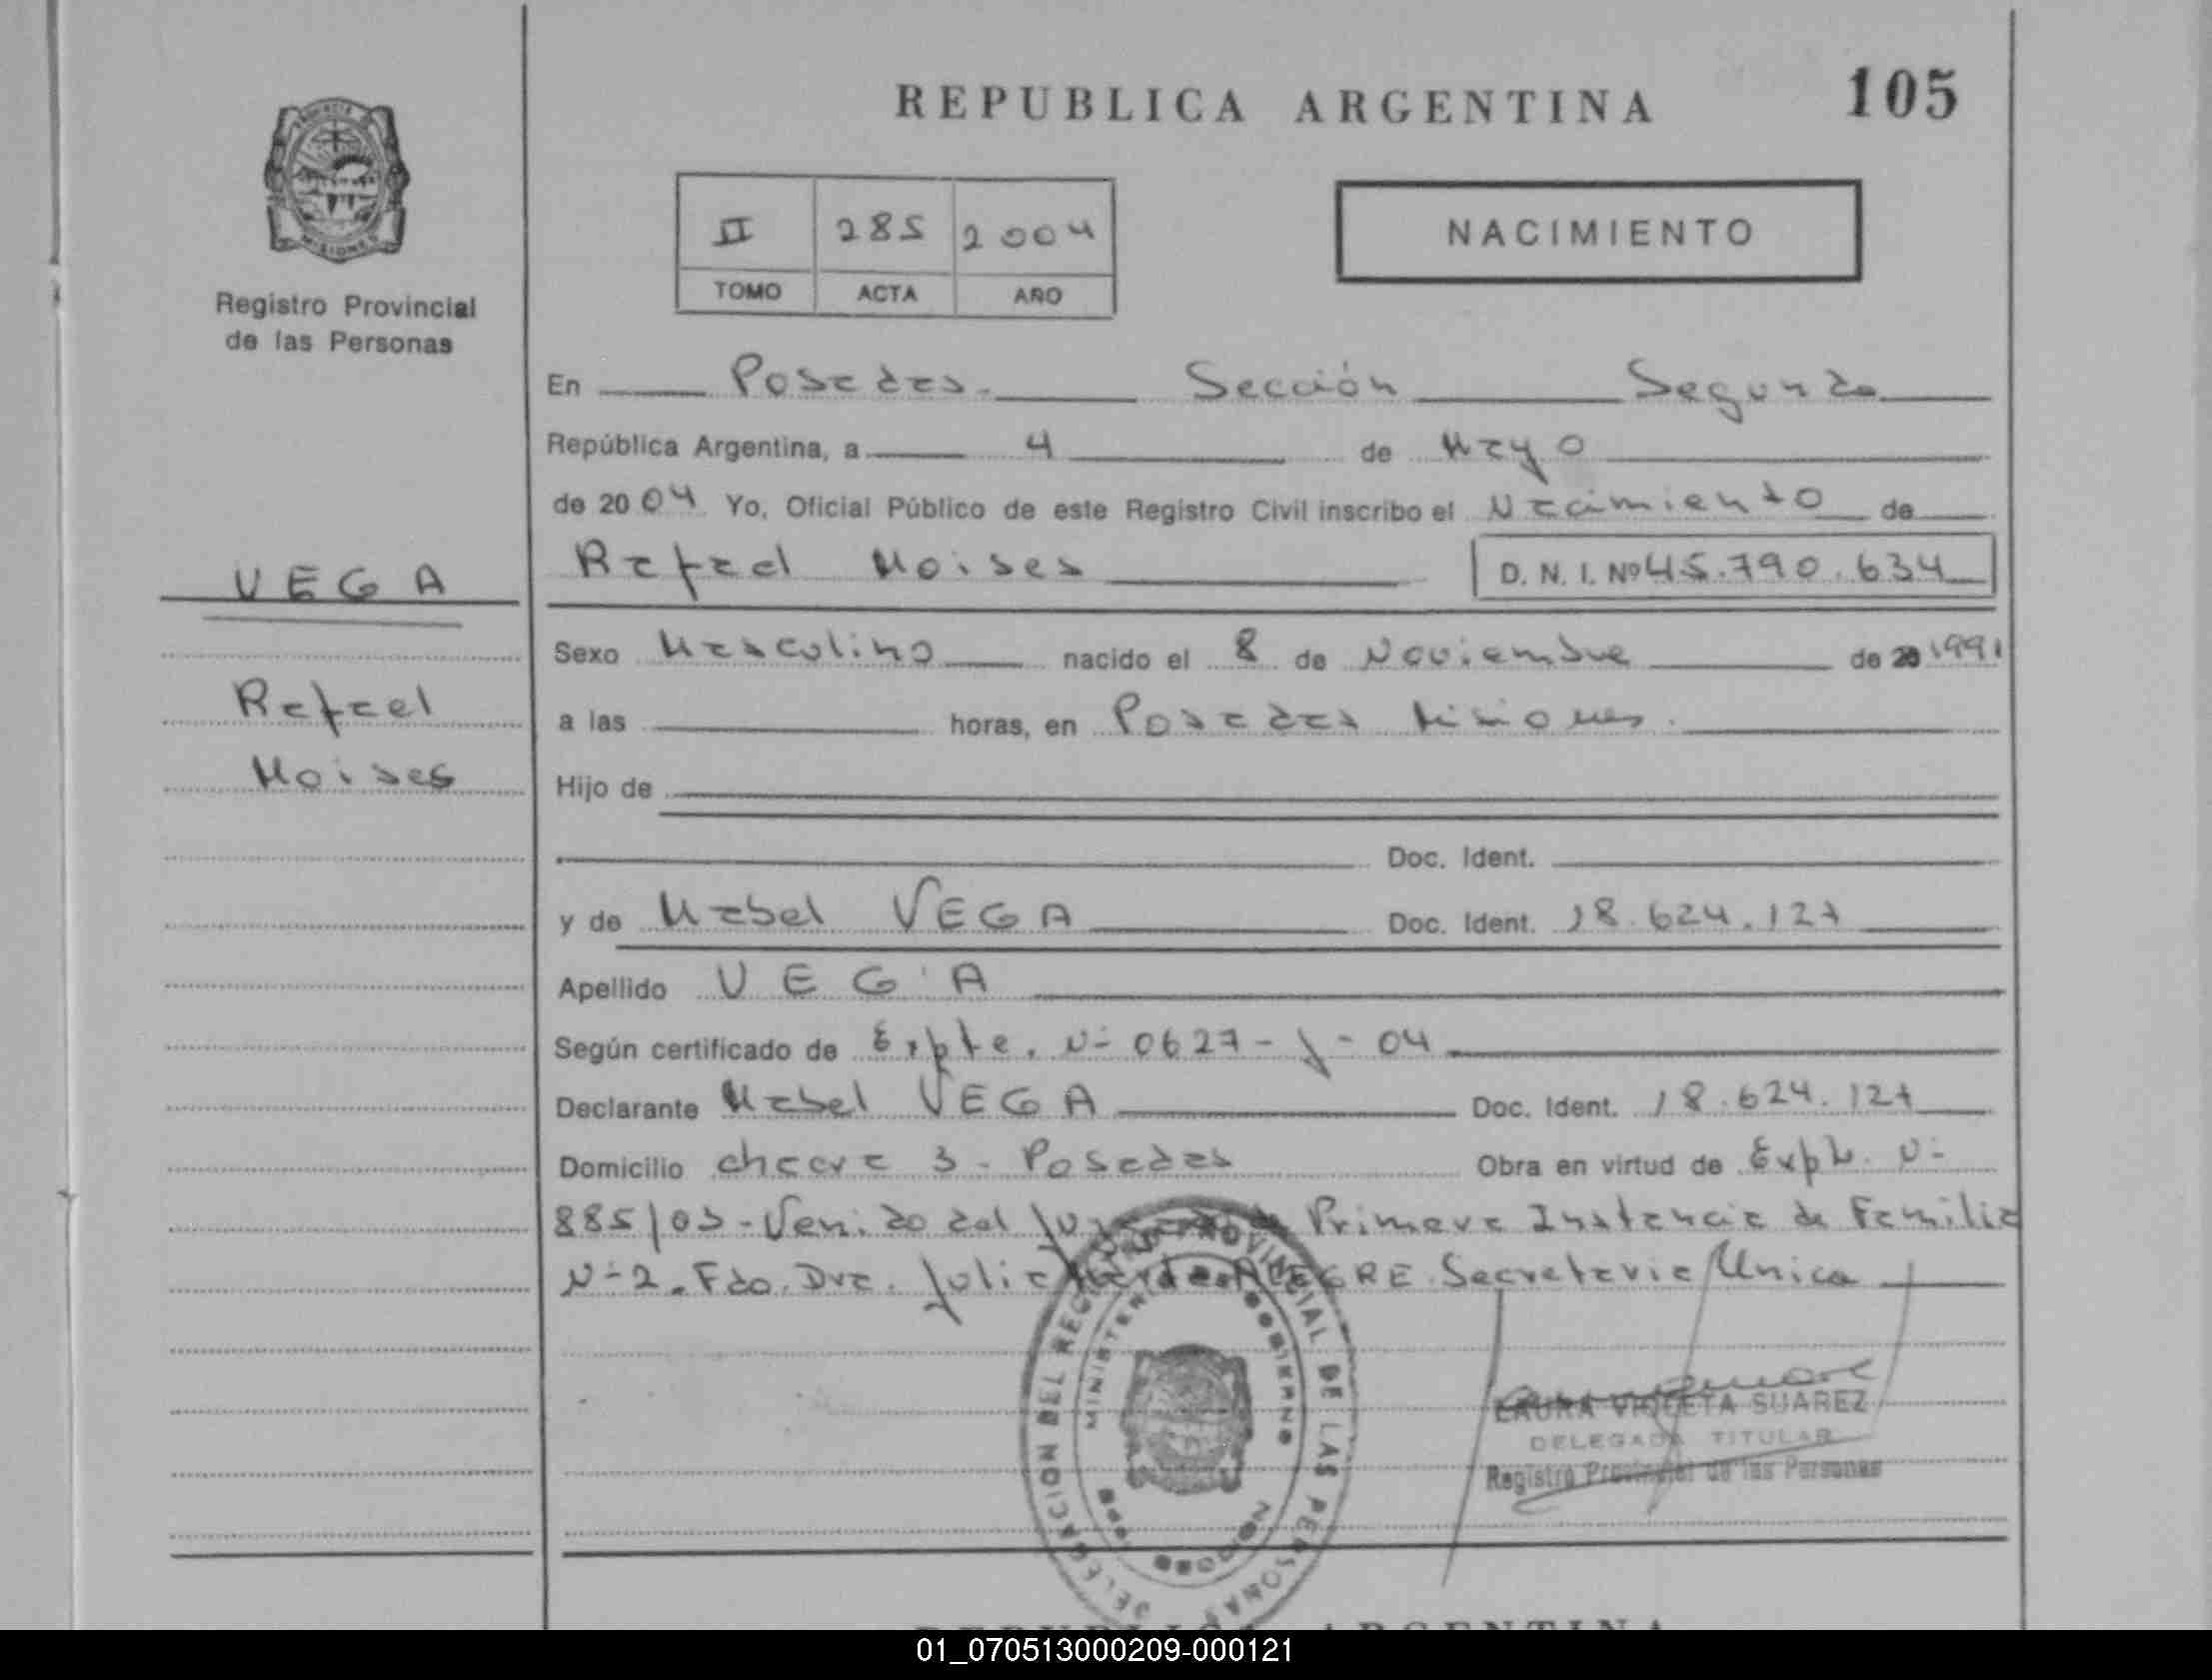 REPUBLICA ARGENTINA 105
PROVINCIA
MISIONES
Registro Provincial
de las Personas
II 285 2004
TOMO ACTA AÑO
NACIMIENTO
En Posadas. Sección Segunda
República Argentina, a 4 de Mayo
de 2004 Yo, Oficial Público de este Registro Civil inscribo el Nacimiento de
VEGA
Rafael Moises D. N. I. Nº 45.790.634
Sexo Masculino nacido el 8 de Noviembre de 20 1991
Rafael
Moises
a las horas, en Posadas Misiones.
Hijo de
Doc. Ident.
y de Mabel VEGA Doc. Ident. 18.624.127
Apellido VEGA
Según certificado de Expte. Nº 0627-J-04
Declarante Mabel VEGA Doc. Ident. 18.624.127
Domicilio chacra 3 - Posadas Obra en virtud de Expte. Nº
885/03 - Venido del Juzgado de Primera Instancia de Familia
Nº 2. Fdo. Dra. Julia ALEGRE Secretaria Unica
DELEGACION DEL REGISTRO PROVINCIAL DE LAS PERSONAS
MINISTERIO GOBIERNO
LAURA VIOLETA SUAREZ
DELEGADA TITULAR
Registro Provincial de las Personas
REPUBLICA ARGENTINA
01_070513000209-000121